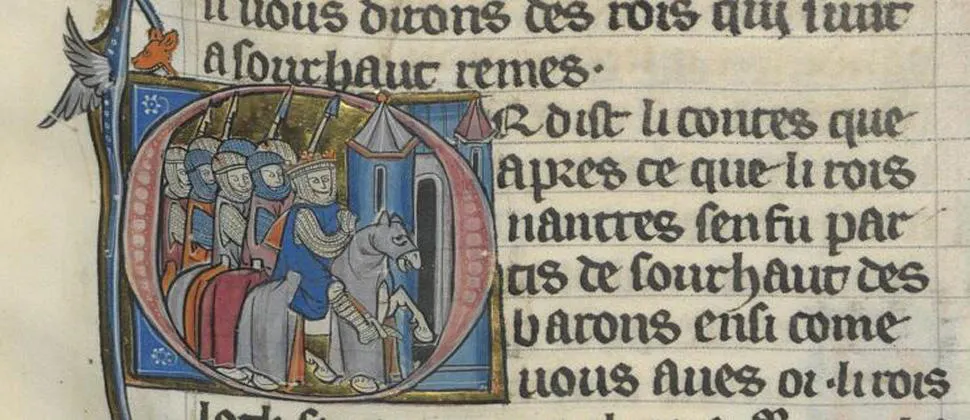 u uous dirons des rois qui sunt
a sorhaut remes.
R dist li contes que
apres ce que li rois
nantres sen fu par
tis de sorhaut des
barons ensi come
uous aues oi. li rois